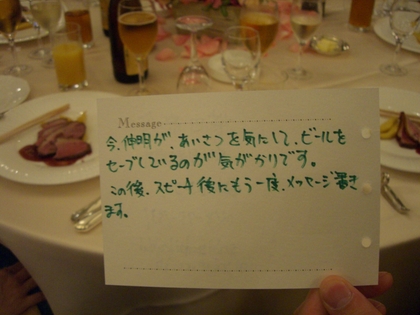 Message
今、伸明が、あいさつを気にして、ビールを
セーブしているのが気がかりです。
この後、スピーチ後にもう一度、メッセージ書き
ます。